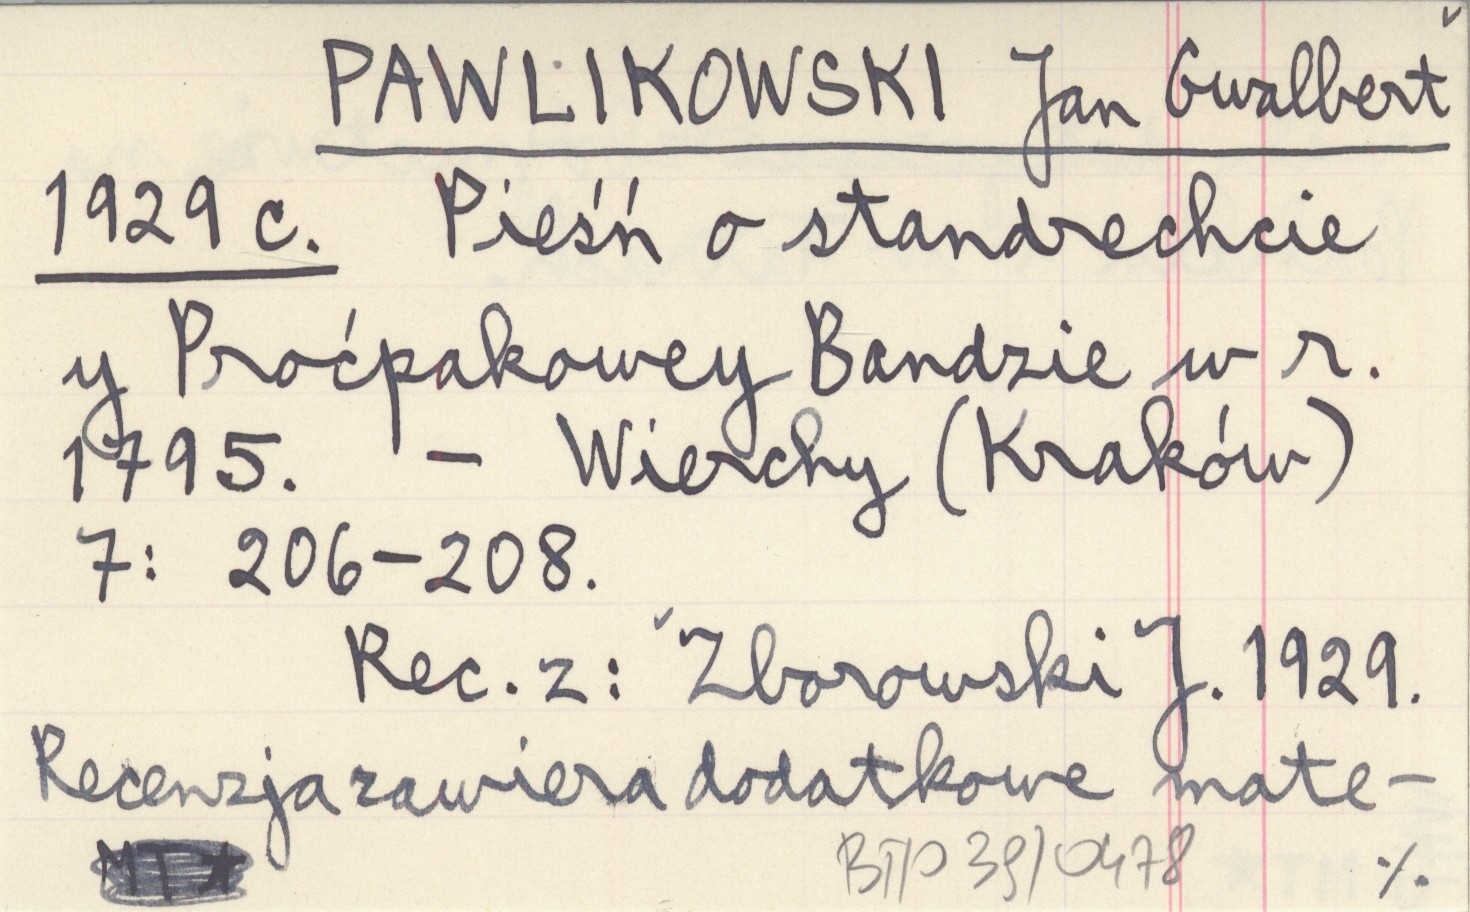 PAWLIKOWSKI Jan Gwalbert
1929 c. Pieśń o standrechcie
y Proćpakowey Bandzie w r.
1795. – Wierchy (Kraków)
7: 206–208.
Rec. z: Zborowski J. 1929.
Recenzja zawiera dodatkowe mate-
MT ★ BTPO 39/0478 ·/.